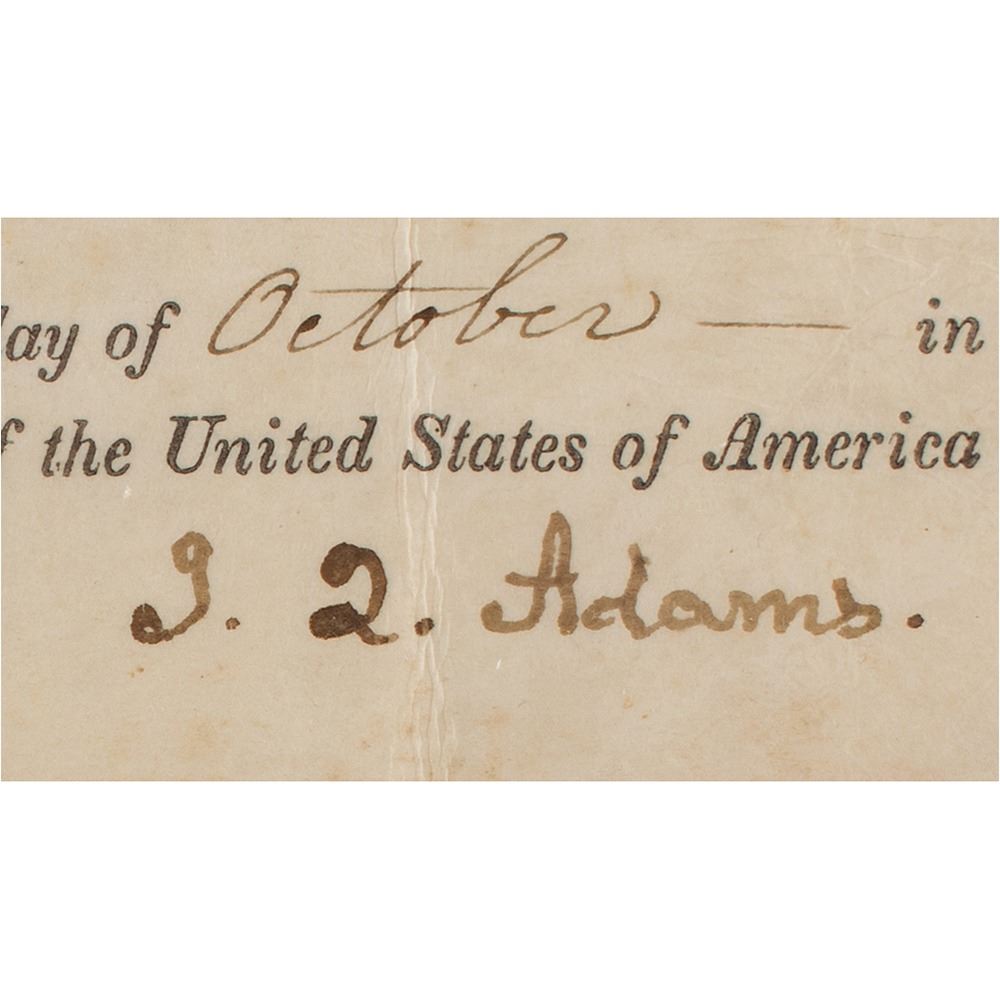 day of October — in
f the United States of America
J. Q. Adams.